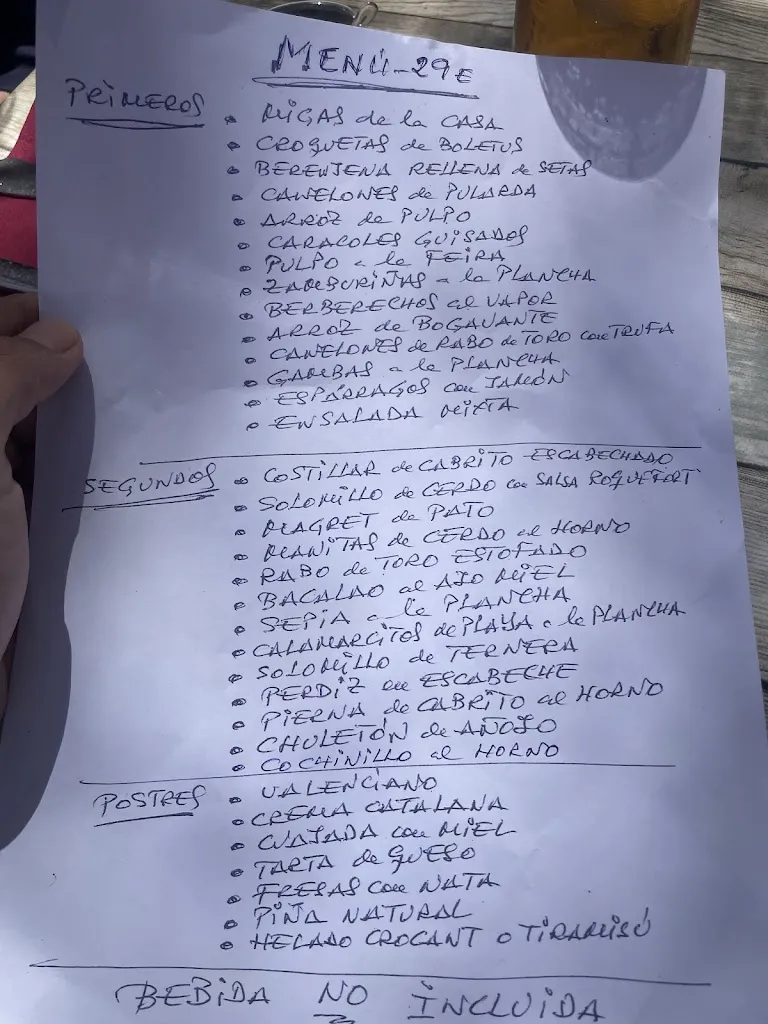 MENÚ-29E
PRIMEROS
• MIGAS de la CASA
• CROQUETAS de BOLETUS
• BERENJENA RELLENA de SETAS
• CANELONES de PULARDA
• ARROZ de PULPO
• CARACOLES GUISADOS
• PULPO a la FEIRA
• ZAMBURIÑAS a la PLANCHA
• BERBERECHOS al VAPOR
• ARROZ de BOGAVANTE
• CANELONES de RABO de TORO con TRUFA
• GAMBAS a la PLANCHA
• ESPÁRRAGOS con JAMÓN
• ENSALADA MIXTA
SEGUNDOS
• COSTILLAR de CABRITO ESCABECHADO
• SOLOMILLO de CERDO con SALSA ROQUEFORT
• MAGRET de PATO
• MANITAS de CERDO al HORNO
• RABO de TORO ESTOFADO
• BACALAO al AJO MIEL
• SEPIA a la PLANCHA
• CALAMARCITOS de PLAYA a la PLANCHA
• SOLOMILLO de TERNERA
• PERDIZ en ESCABECHE
• PIERNA de CABRITO al HORNO
• CHULETÓN de AÑOJO
• COCHINILLO al HORNO
POSTRES
• VALENCIANO
• CREMA CATALANA
• CUAJADA con MIEL
• TARTA de QUESO
• FRESAS con NATA
• PIÑA NATURAL
• HELADO CROCANT o TIRAMISÚ
BEBIDA NO INCLUIDA